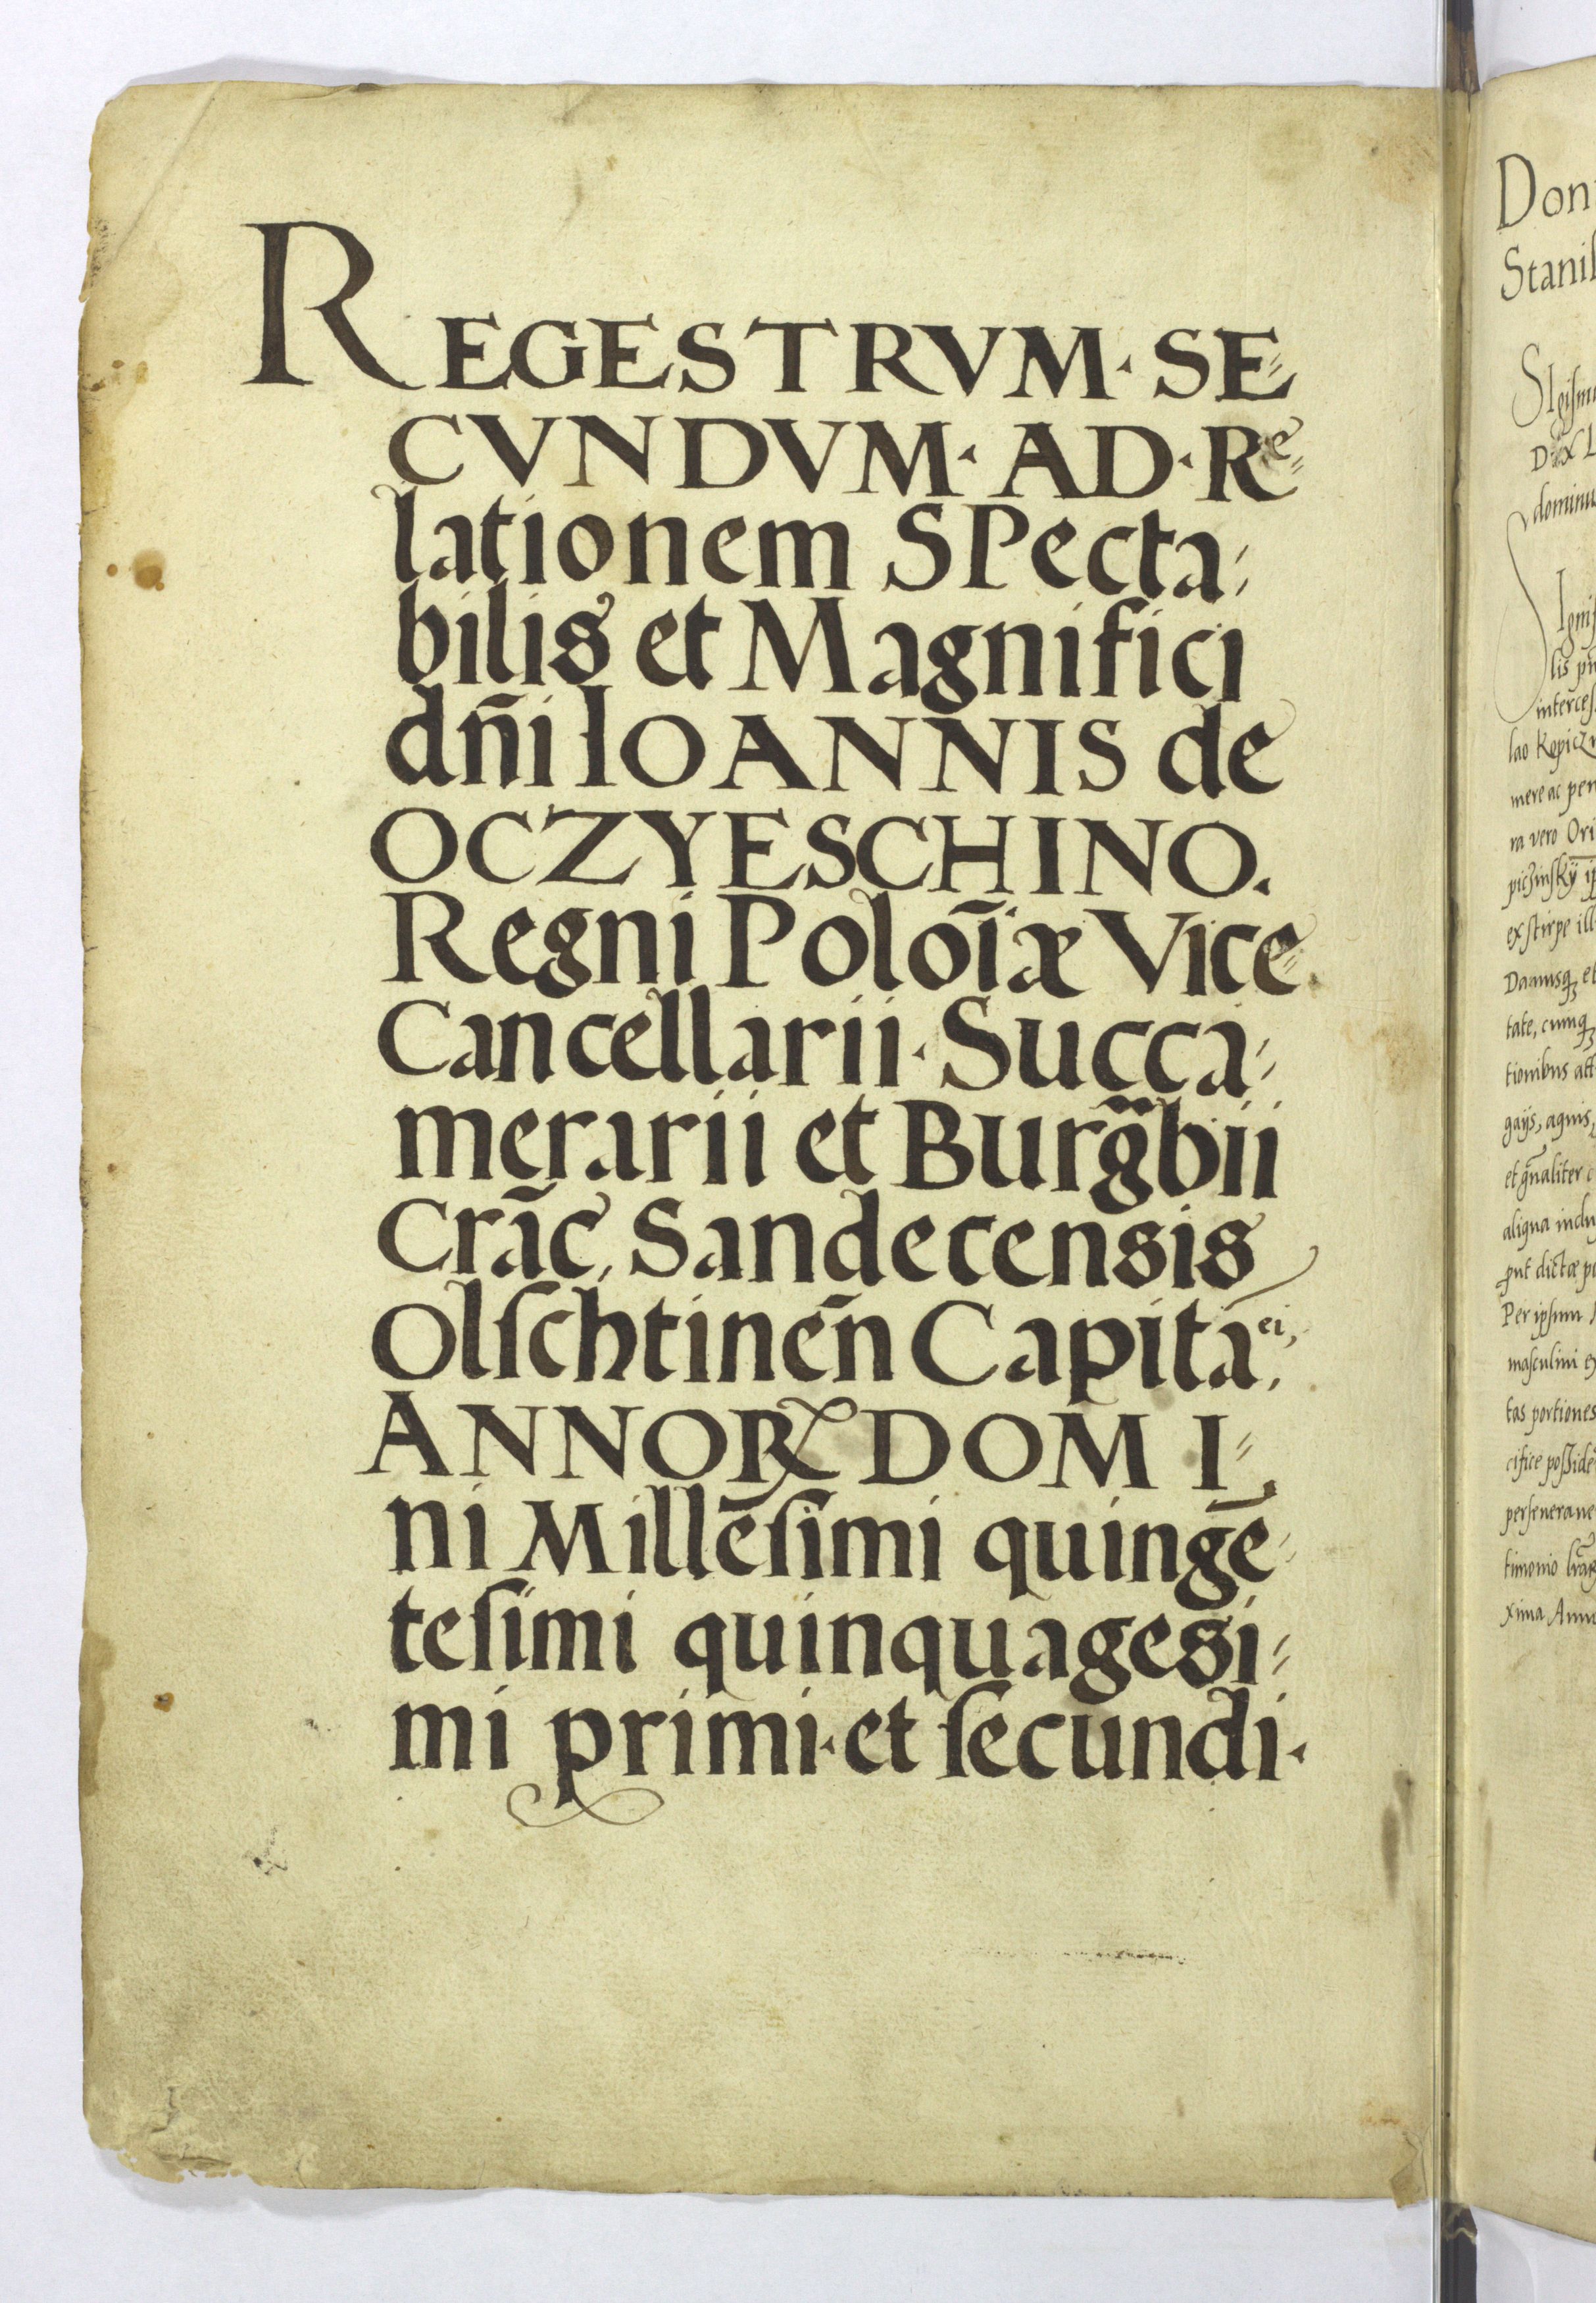 REGESTRVM · SE=
CVNDVM · AD · Re=
lationem SPecta,
bilis et Magnifici
dñi IOANNIS de
OCZYESCHINO.
Regni Poloĩæ Vice=
Cancellarii · Succa=
merarii et Burg̃bii
Crãc, Sandecensis
Olſchtineñ Capitaei,
ANNOꝜ DOMI=
ni Millẽſimi quingẽ=
teſimi quinquagesi=
mi primi · et ſecundi ·
Stanil
dominu
lis
lao Kopicz
mere ac per
ra vero Ori
ex stirpe ill
tate, cumq
tionibus att
gaijs, agnis,
aliqua inclu
Per ipsum
masculini
tas portiones
cifice posside
perseverave
xima Anno